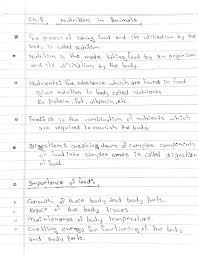 Ch.2 Nutrition in Animals,
* The process of taking food and its utilisation by the body is called nutrition.
* Nutrition is the mode taking food by an organism and its utilisation by the body.
* Nutrients: The substance which are found in food give nutrition to body called nutrients
Ex protein, fat, vitamin, etc.
* Food: it is the combination of nutrients which are required to nourish the body.
* Digestion: breaking down of complex components of food into simpler ones is called digestion of food.
* Importance of food:
Growth of the body and body parts.
Repair of the body tissues
Maintenance of body temperature
Getting energy for functioning of the body and body parts.